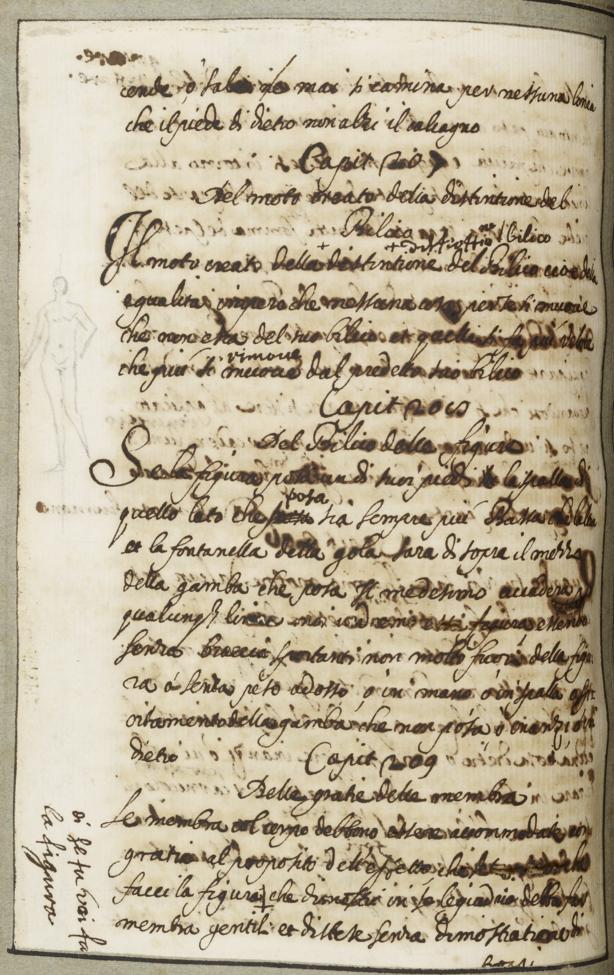 cende, ó sale mai si camina per nessuna linia
che il piede di dietro non alzi il calcagno
Capit 207
Del moto creato della distintione del
Bilico
bilico
Il moto creato della distintione del Bilico cioè della
equalita impero che nessuna cosa per se si muove
che non esca del suo bilico et quella si fa più veloce
rimove
che più si muove dal predetto suo bilico
Capit 208
Del Bilico delle figure
Se la figura posa un di suoi piedi la spalla di
posa
quello lato che sia sempre più bassa
et la fontanella della gola sara di sopra il mezzo
della gamba che posa Il medesimo accadera
qualunq linea noi vedremo essa figura essendo
senza braccia sportanti non molto fuori della figu
ra ó senza peso adosso, ó in mano ó in spalla
della gamba, che non posa ó inanzi ó
dietro
Capit 209
Delle gratie delle membra
Le membra col corpo debbono essere accommodate con
gratia al proposito dell'effetto che
facci la figura, che dimostri in se legiadria
membra gentili et distese senza dimostratione di
se tu voi fa
la figura